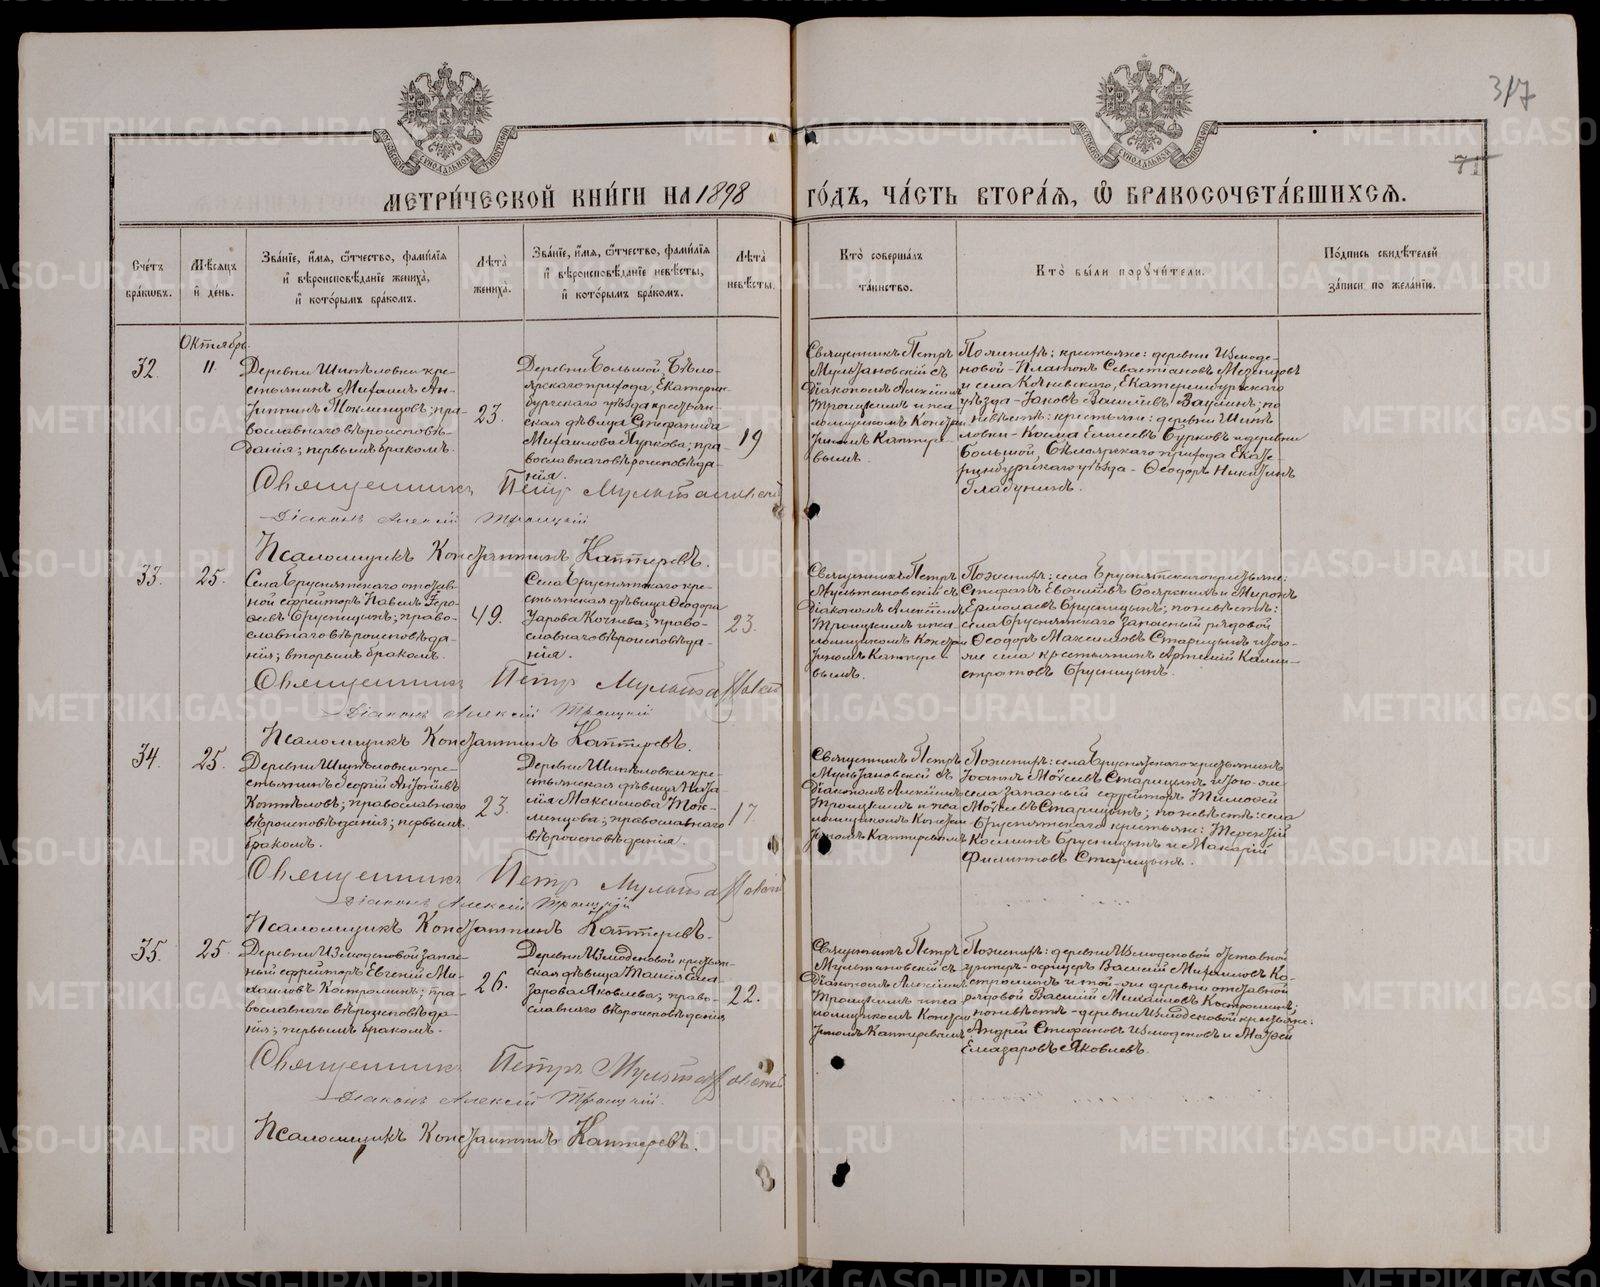 317
71
МЕТРИ́ЧЕСКОЙ КНИ́ГИ НА 1898 ГО́ДЪ, ЧА́СТЬ ВТОРА́Я, Ѿ БРАКОСОЧЕТА́ВШИХСЯ.
Сче́тъ бра́ковъ.
Мѣ́сяцъ и҆ де́нь.
Зва́нїе, и҆́мя, ѻ҆́тчество, фами́лїя и҆ вѣроисповѣ́данїе жениха̀, и҆ кото́рымъ бра́комъ.
Лѣта̀ жениха̀.
Зва́нїе, и҆́мя, ѻ҆́тчество, фами́лїя и҆ вѣроисповѣ́данїе невѣ́сты, и҆ кото́рымъ бра́комъ.
Лѣта̀ невѣ́сты.
Кто̀ соверша́лъ та́инство.
Кто̀ бы́ли порꙋчи́тели.
По́дпись свидѣ́телей за́писи по жела́нїю.
Октябрь
32.
11
Деревни Шипѣловки кре-
стьянинъ Михаилъ Ан-
Токменцовъ; пра-
вославнаго вѣроисповѣ-
данія; первымъ бракомъ.
23.
Деревни Большой, Бѣло-
ярскаго прихода, Екатерин-
бургскаго уѣзда крестьян-
ская дѣвица Стефанида
Михаилова Пуркова; пра-
вославнаго вѣроисповѣда-
нія.
19
Священникъ Петръ
Мультановскій съ
Діакономъ Алексіемъ
Троицкимъ и пса-
ломщикомъ Констан-
тиномъ Каптере-
вымъ.
По женихѣ: крестьяне: деревни Измоде-
новой - Платонъ Севастіановъ Мезенцовъ
и села Кочневскаго, Екатеринбургскаго
уѣзда - Іаковъ Вашинъ; по
невѣстѣ: крестьяне: деревни Шипѣ-
ловки - Косма Елисеевъ Бурковъ и деревни
Большой, Бѣлоярскаго прихода Екате-
ринбургскаго уѣзда - Ѳеодоръ Никитинъ
Гладунинъ.
Священникъ Петръ Мультановскій
Діаконъ Алексій Троицкій
Псаломщикъ Константинъ Каптеревъ.
33.
25.
Села Бруснятскаго отстав-
ной ефрейторъ Павелъ Геро-
Брусницынъ; право-
славнаго вѣроисповѣда-
нія; вторымъ бракомъ.
49.
Села Бруснятскаго кре-
стьянская дѣвица Ѳеодора
Уарова Кочнева; право-
славнаго вѣроисповѣда-
нія.
23.
Священникъ Петръ
Мультановскій съ
Діакономъ Алексіемъ
Троицкимъ и пса-
ломщикомъ Констан-
тиномъ Каптере-
вымъ.
По женихѣ: села Бруснятскаго крестьяне:
Стефанъ Боярскихъ и Миронъ
Ермолаевъ Брусницынъ; по невѣстѣ:
села Бруснятскаго запасный рядовой
Ѳеодоръ Максимовъ Старицынъ и того-
же села крестьянинъ Артемій Калли-
стратовъ Брусницынъ.
Священникъ Петръ Мультановскій
Діаконъ Алексій Троицкій
Псаломщикъ Константинъ Каптеревъ.
34.
25.
Деревни Шипѣловки кре-
стьянинъ Георгій Антоніевъ
Коптѣловъ; православнаго
вѣроисповѣданія; первымъ
бракомъ.
23.
Деревни Шипѣловки кре-
стьянская дѣвица Ната-
лія Максимова Ток-
менцова; православнаго
вѣроисповѣданія.
17.
Священникъ Петръ
Мультановскій съ
Діакономъ Алексіемъ
Троицкимъ и пса-
ломщикомъ Констан-
тиномъ Каптеревымъ
По женихѣ: села Бруснятскаго крестьянинъ
Іоаннъ Моѵсеевъ Старицынъ и того-же
села запасный ефрейторъ Тимоѳей
Моѵсеевъ Старицынъ; по невѣстѣ: села
Бруснятскаго крестьяне: Терентій
Косминъ Брусницынъ и Макарій
Филипповъ Старицынъ.
Священникъ Петръ Мультановскій
Діаконъ Алексій Троицкій
Псаломщикъ Константинъ Каптеревъ.
35.
25.
Деревни Измоденовой запас-
ный ефрейторъ Евгеній Ми-
хаиловъ Костроминъ; пра-
вославнаго вѣроисповѣда-
нія; первымъ бракомъ.
26.
Деревни Измоденовой крестьян-
ская дѣвица Таисія Елеа-
зарова Яковлева; право-
славнаго вѣроисповѣданія
22.
Священникъ Петръ
Мультановскій съ
Діакономъ Алексіемъ
Троицкимъ и пса-
ломщикомъ Констан-
тиномъ Каптеревымъ
По женихѣ: деревни Измоденовой отставной
унтеръ-офицеръ Василій Михаиловъ Ко-
строминъ и той-же деревни отставной
рядовой Василій Михаиловъ Костроминъ;
по невѣстѣ - деревни Измоденовой крестьяне:
Андрей Стефановъ Измоденовъ и Матѳей
Елеазаровъ Яковлевъ.
Священникъ Петръ Мультановскій
Діаконъ Алексій Троицкій.
Псаломщикъ Константинъ Каптеревъ.
METRIKI.GASO-URAL.RU